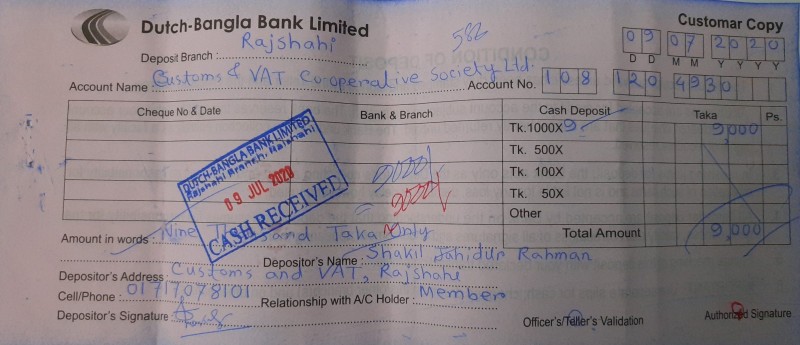 Dutch-Bangla Bank Limited
Customar Copy
Deposit Branch : Rajshahi
582
09 07 2020
D D M M Y Y Y Y
Account Name : Customs & VAT Co-operative Society Ltd.
Account No. 108 120 4930
Cheque No & Date Bank & Branch Cash Deposit Taka Ps.
Tk. 1000X 9 9,000
Tk. 500X
Tk. 100X
Tk. 50X
Other
Total Amount 9,000
DUTCH-BANGLA BANK LIMITED
Rajshahi Branch, Rajshahi
09 JUL 2020
CASH RECEIVED
9000/
9000/
Amount in words : Nine Thousand Taka Only
Depositor's Name : Shakil Jahidur Rahman
Depositor's Address : Customs and VAT, Rajshahi
Cell/Phone : 01717078101 Relationship with A/C Holder : Member
Depositor's Signature
Officer's/Teller's Validation
Authorized Signature